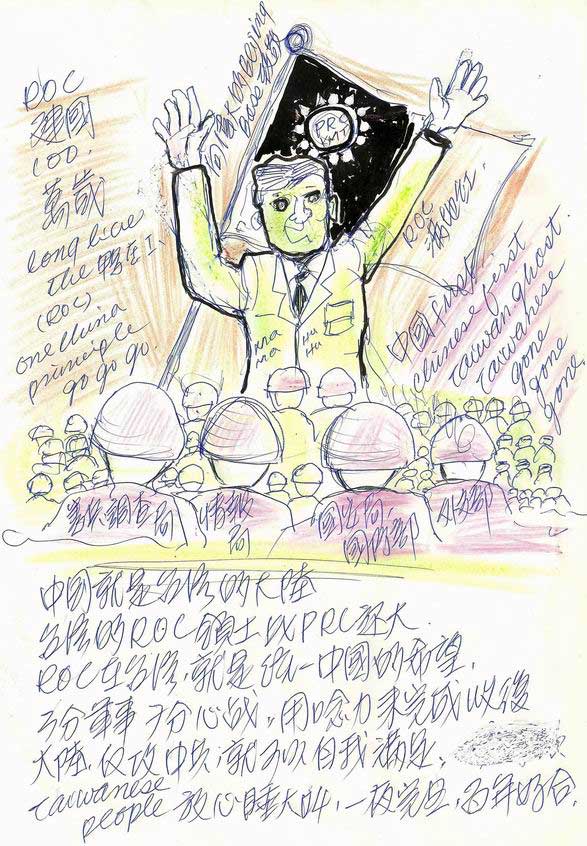 ROC
建國
100.
萬歲
long live
the
(ROC)
one china
principle
go go go.
PRC
KMT
ROC
Ma Hu
Ma Hu
中國 first
chinese first
taiwan ghost
taiwanese
gone
gone
gone.
調查局
情報
局
國安局
國防部
外交部
中國就是台灣的大陸
台灣的ROC領土比PRC還大.
ROC在台灣,就是統一中國的希望,
3分軍事7分心战,用唸力来完成以後
大陸,反攻中共,就可以自我滿足,
taiwanese
people 放心睡大叫,一夜党旦,百年好合,